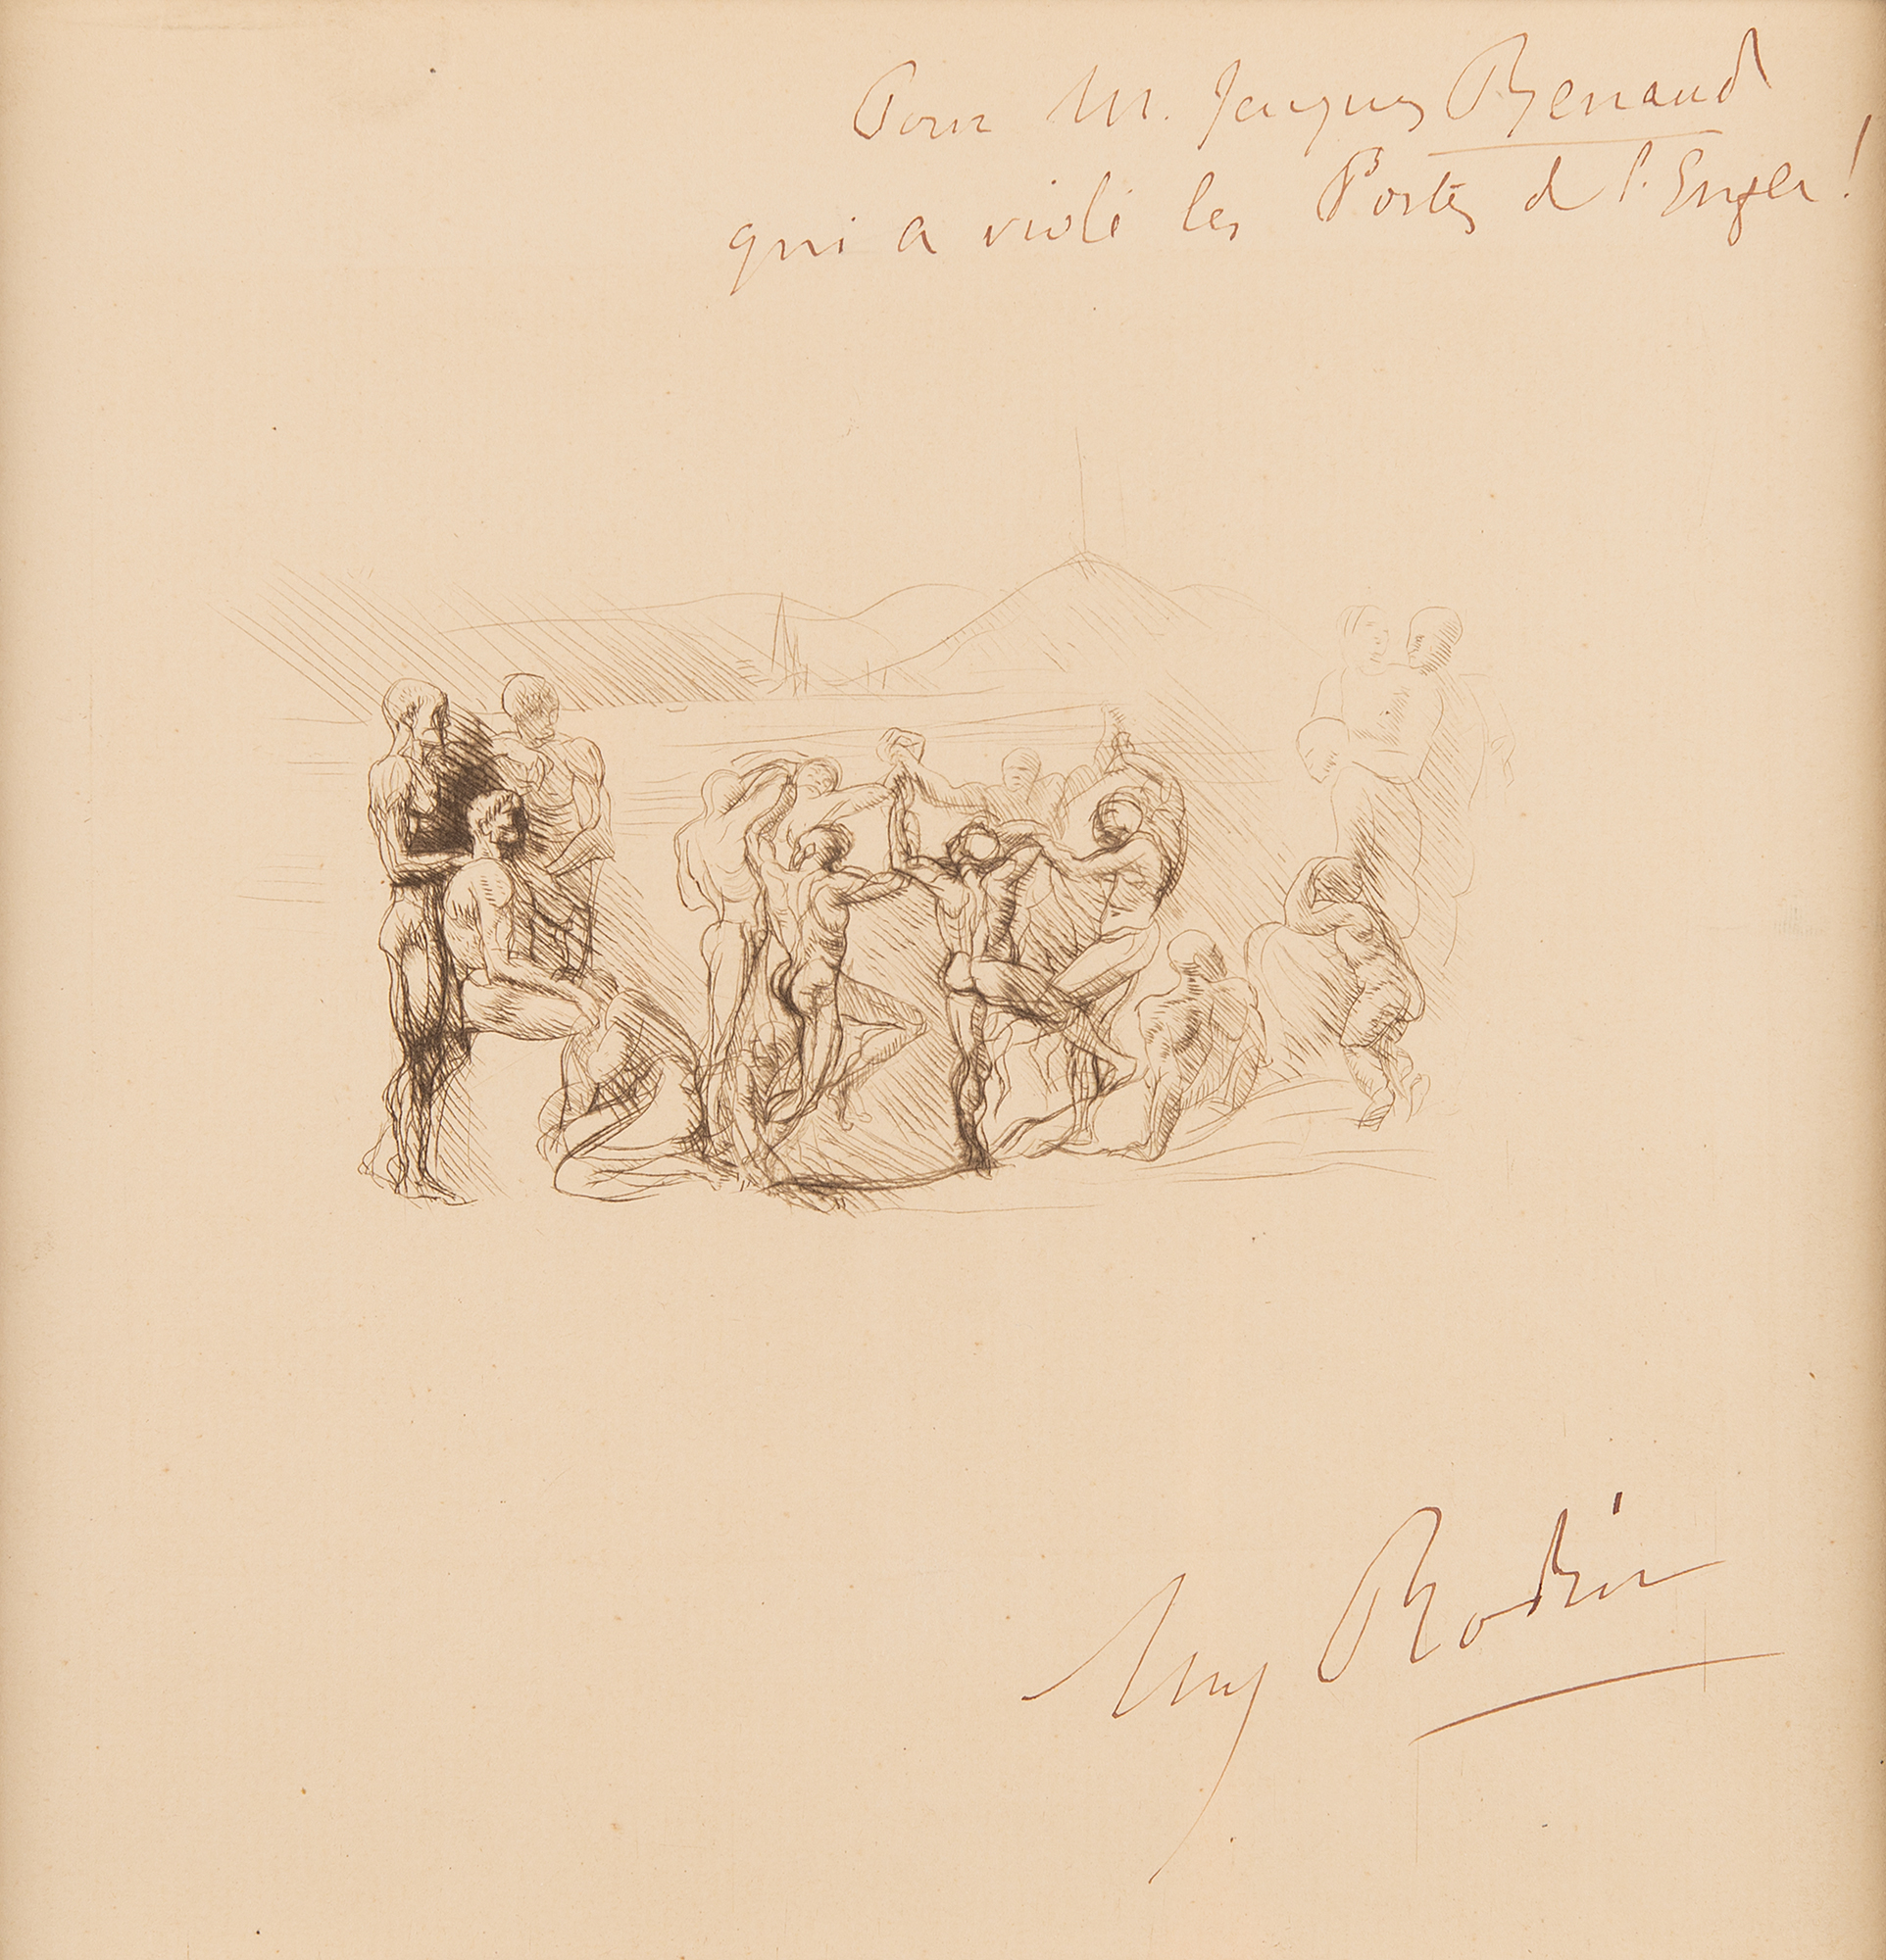 Pour M. Jacques Renaud
qui a violé les Portes de l'Enfer !
Aug Rodin